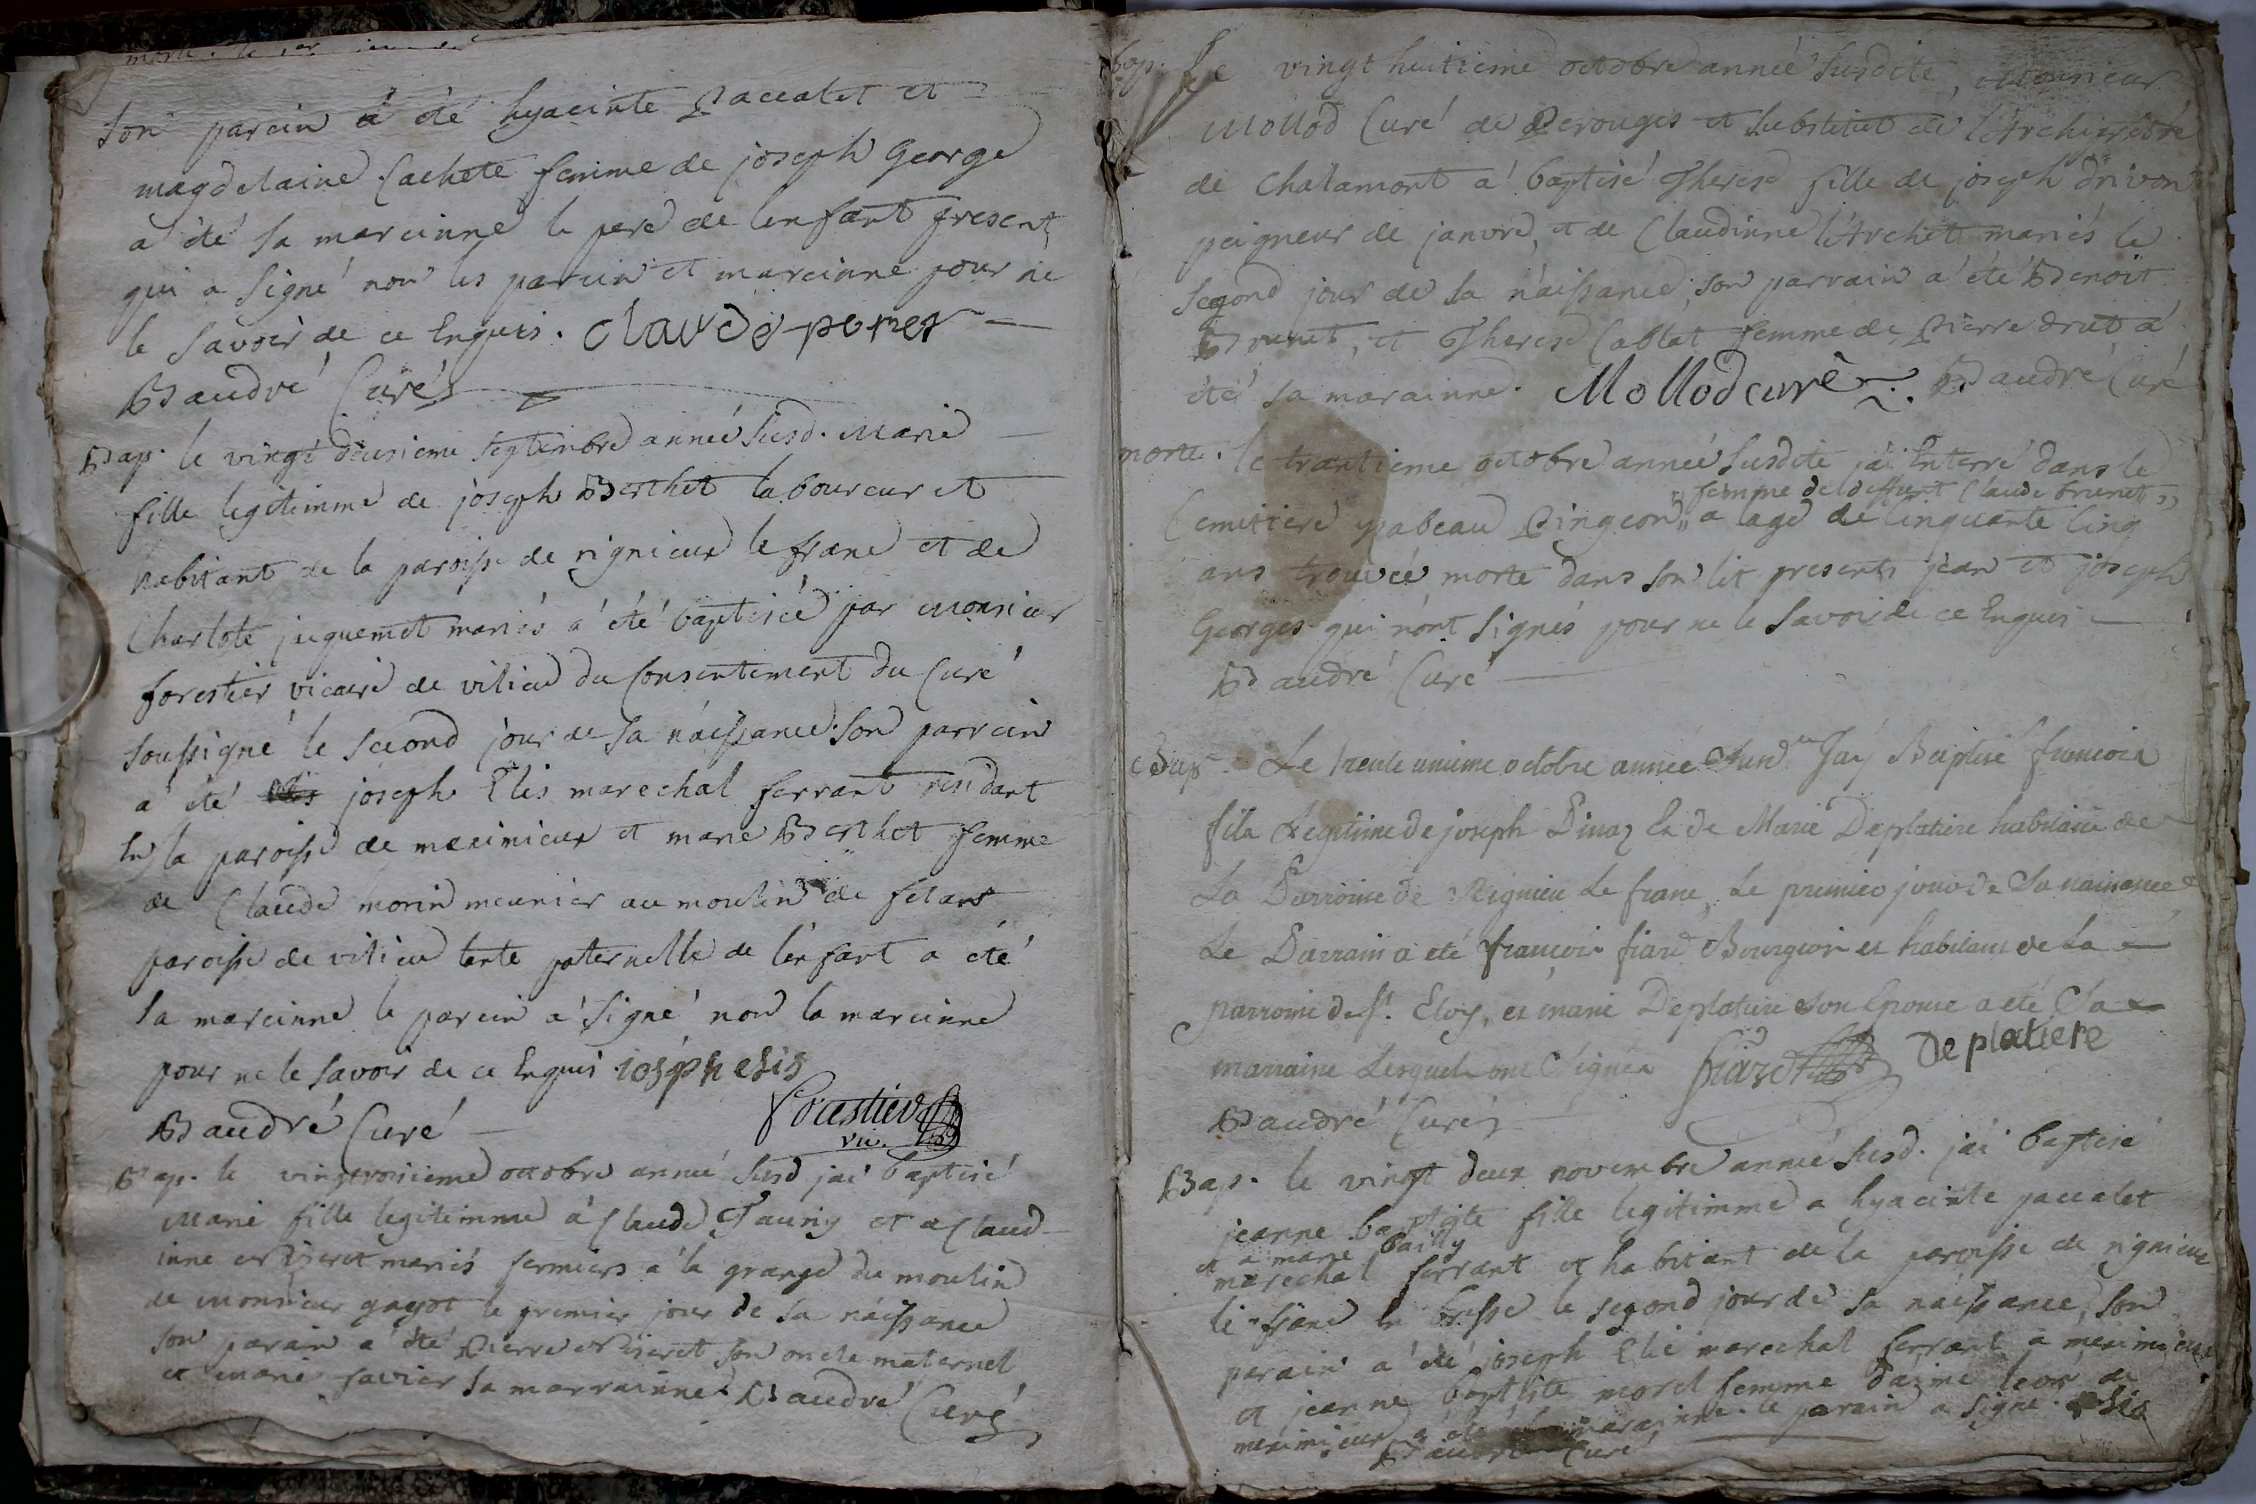 son parein a été hyacinte Paccalet et
magdelaine Cachete femme de joseph George
a été sa mareinne le pere de lenfant present
qui a signé non les parein et mareinne pour ne
le savoir de ce Enquis. Claude perret
Baudré Curé
Bap. le vingt deusieme septembre année susd. Marie
fille legitimme de joseph Berthet laboureur et
habitant de la paroisse de rignieux le franc et de
Charlote juquemet mariés a été baptisée par Monsieur
forestier vicaire de vilieu du Consentement du Curé
soussigné le second jour de sa naissance. son parrein
a été joseph Elis marechal ferrant residant
En la paroisse de meximieux et marie Berthet femme
de Claude morin meunier au moulin de
paroisse de vilieu tente paternelle de lenfant a été
sa mareinne le parein a signé non la mareinne
pour ne le savoir de ce Enquis. ioseph elis
Forestier
vic.
Baudré Curé
Bap. le vingtroisieme octobre année susd jai baptisé
Marie fille legitimme a Claude et a Claud
inne mariés fermiers a la grange du moulin
de Monsieur gayot le premier jour de sa naissance
son parain a été Pierre son oncle maternel
et Marie savier sa marrainne Baudré Curé
Bap. Le vingt huitieme octobre année susdite, Monsieur
Mollod Curé de Perouges et substitut de l'Archiprêtré
de Chalamont a baptisé Therese fille de joseph drivon
peigneur de janvre, et de Claudinne l'Archet mariés le
segond jour de sa naissance, son parrain a été Benoit
Brunet, et Therese Cablat femme de Pierre drut a
été sa marainne. Mollod curé. Baudré Curé
morte. le trantieme octobre année susdite jai Enterré dans le
femme de deffunt Claude brunet
Cemitiere ysabeau Pingeon a lage de Cinquante Cinq
ans trouvée morte dans son lit presents jean et joseph
Georges qui n'ont signés pour ne le savoir de ce Enquis
Baudré Curé
Bap. Le trente unieme octobre année Susd. Jay Baptisé francois
fils Legitime de joseph Pinaz Et de Marie Deplatiere habitans de
La Parroisse de Rignieu Le franc, Le premier jour de Sa naissance
Le Parrain a eté francois fiard Bourgeois et habitant de La
parroisse de St. Eloy, et marie Deplatiere son Epouse a eté Sa
marraine Lesquels ont Signés fiard Deplatiere
Baudré Curé
Bap. le vingt deux novembre année susd. jai baptisé
jeanne baptiste fille legitimme a hyacinte paccalet
et a marie bailly
marechal ferrant et habitant de la paroisse de rignieux
le franc En bresse le segond jour de sa naissance, son
parain a été joseph Elie marechal ferrant a meximieux
et jeanne baptiste morel femme daimé leon de
meximieux a été marainne. le parain a signé. elis
Baudré Curé